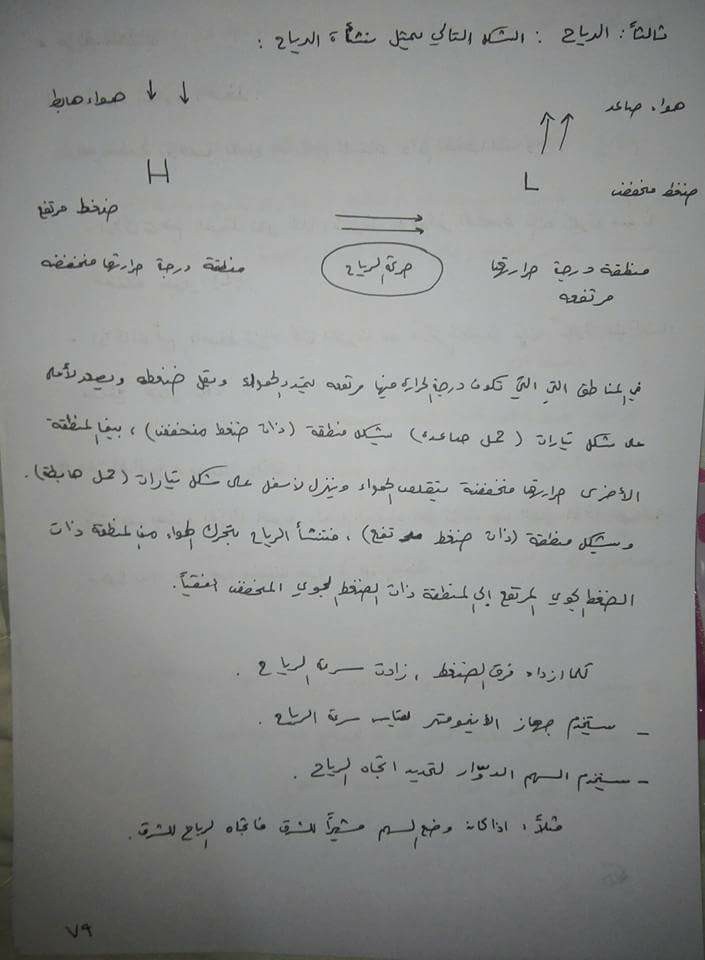 ثالثاً: الرياح : الشكل التالي يمثل منشأة الرياح :
هواء صاعد
↑↑
هواء هابط ↓ ↓
L
H
ضغط منخفض
ضغط مرتفع
منطقة درجة حرارتها
مرتفعه
حركة الرياح
منطقة درجة حرارتها منخفضه
في المناطق التي التي تكون درجة الحرارة فيها مرتفعه يتمدد الهواء ويقل ضغطه ويصعد لأعلى
على شكل تيارات (حمل صاعده) يشكل منطقة (ذات ضغط منخفض) ، بينما المنطقة
الأخرى حرارتها منخفضة يتقلص الهواء وينزل لأسفل على شكل تيارات (حمل هابطة).
ويشكل منطقة (ذات ضغط مرتفع) ، فتنشأ الرياح بتحرك الهواء من المنطقة ذات
الضغط الجوي المرتفع إلى المنطقة ذات الضغط الجوي المنخفض افقياً.
كلما ازداد فرق الضغط ، زادت سرعة الرياح .
- يستخدم جهاز الأنيمومتر لقياس سرعة الرياح .
- يستخدم السهم الدوّار لتحديد اتجاه الرياح .
مثلاً : اذا كان وضع السهم مشيراً للشرق فاتجاه الرياح للشرق .
٧٩